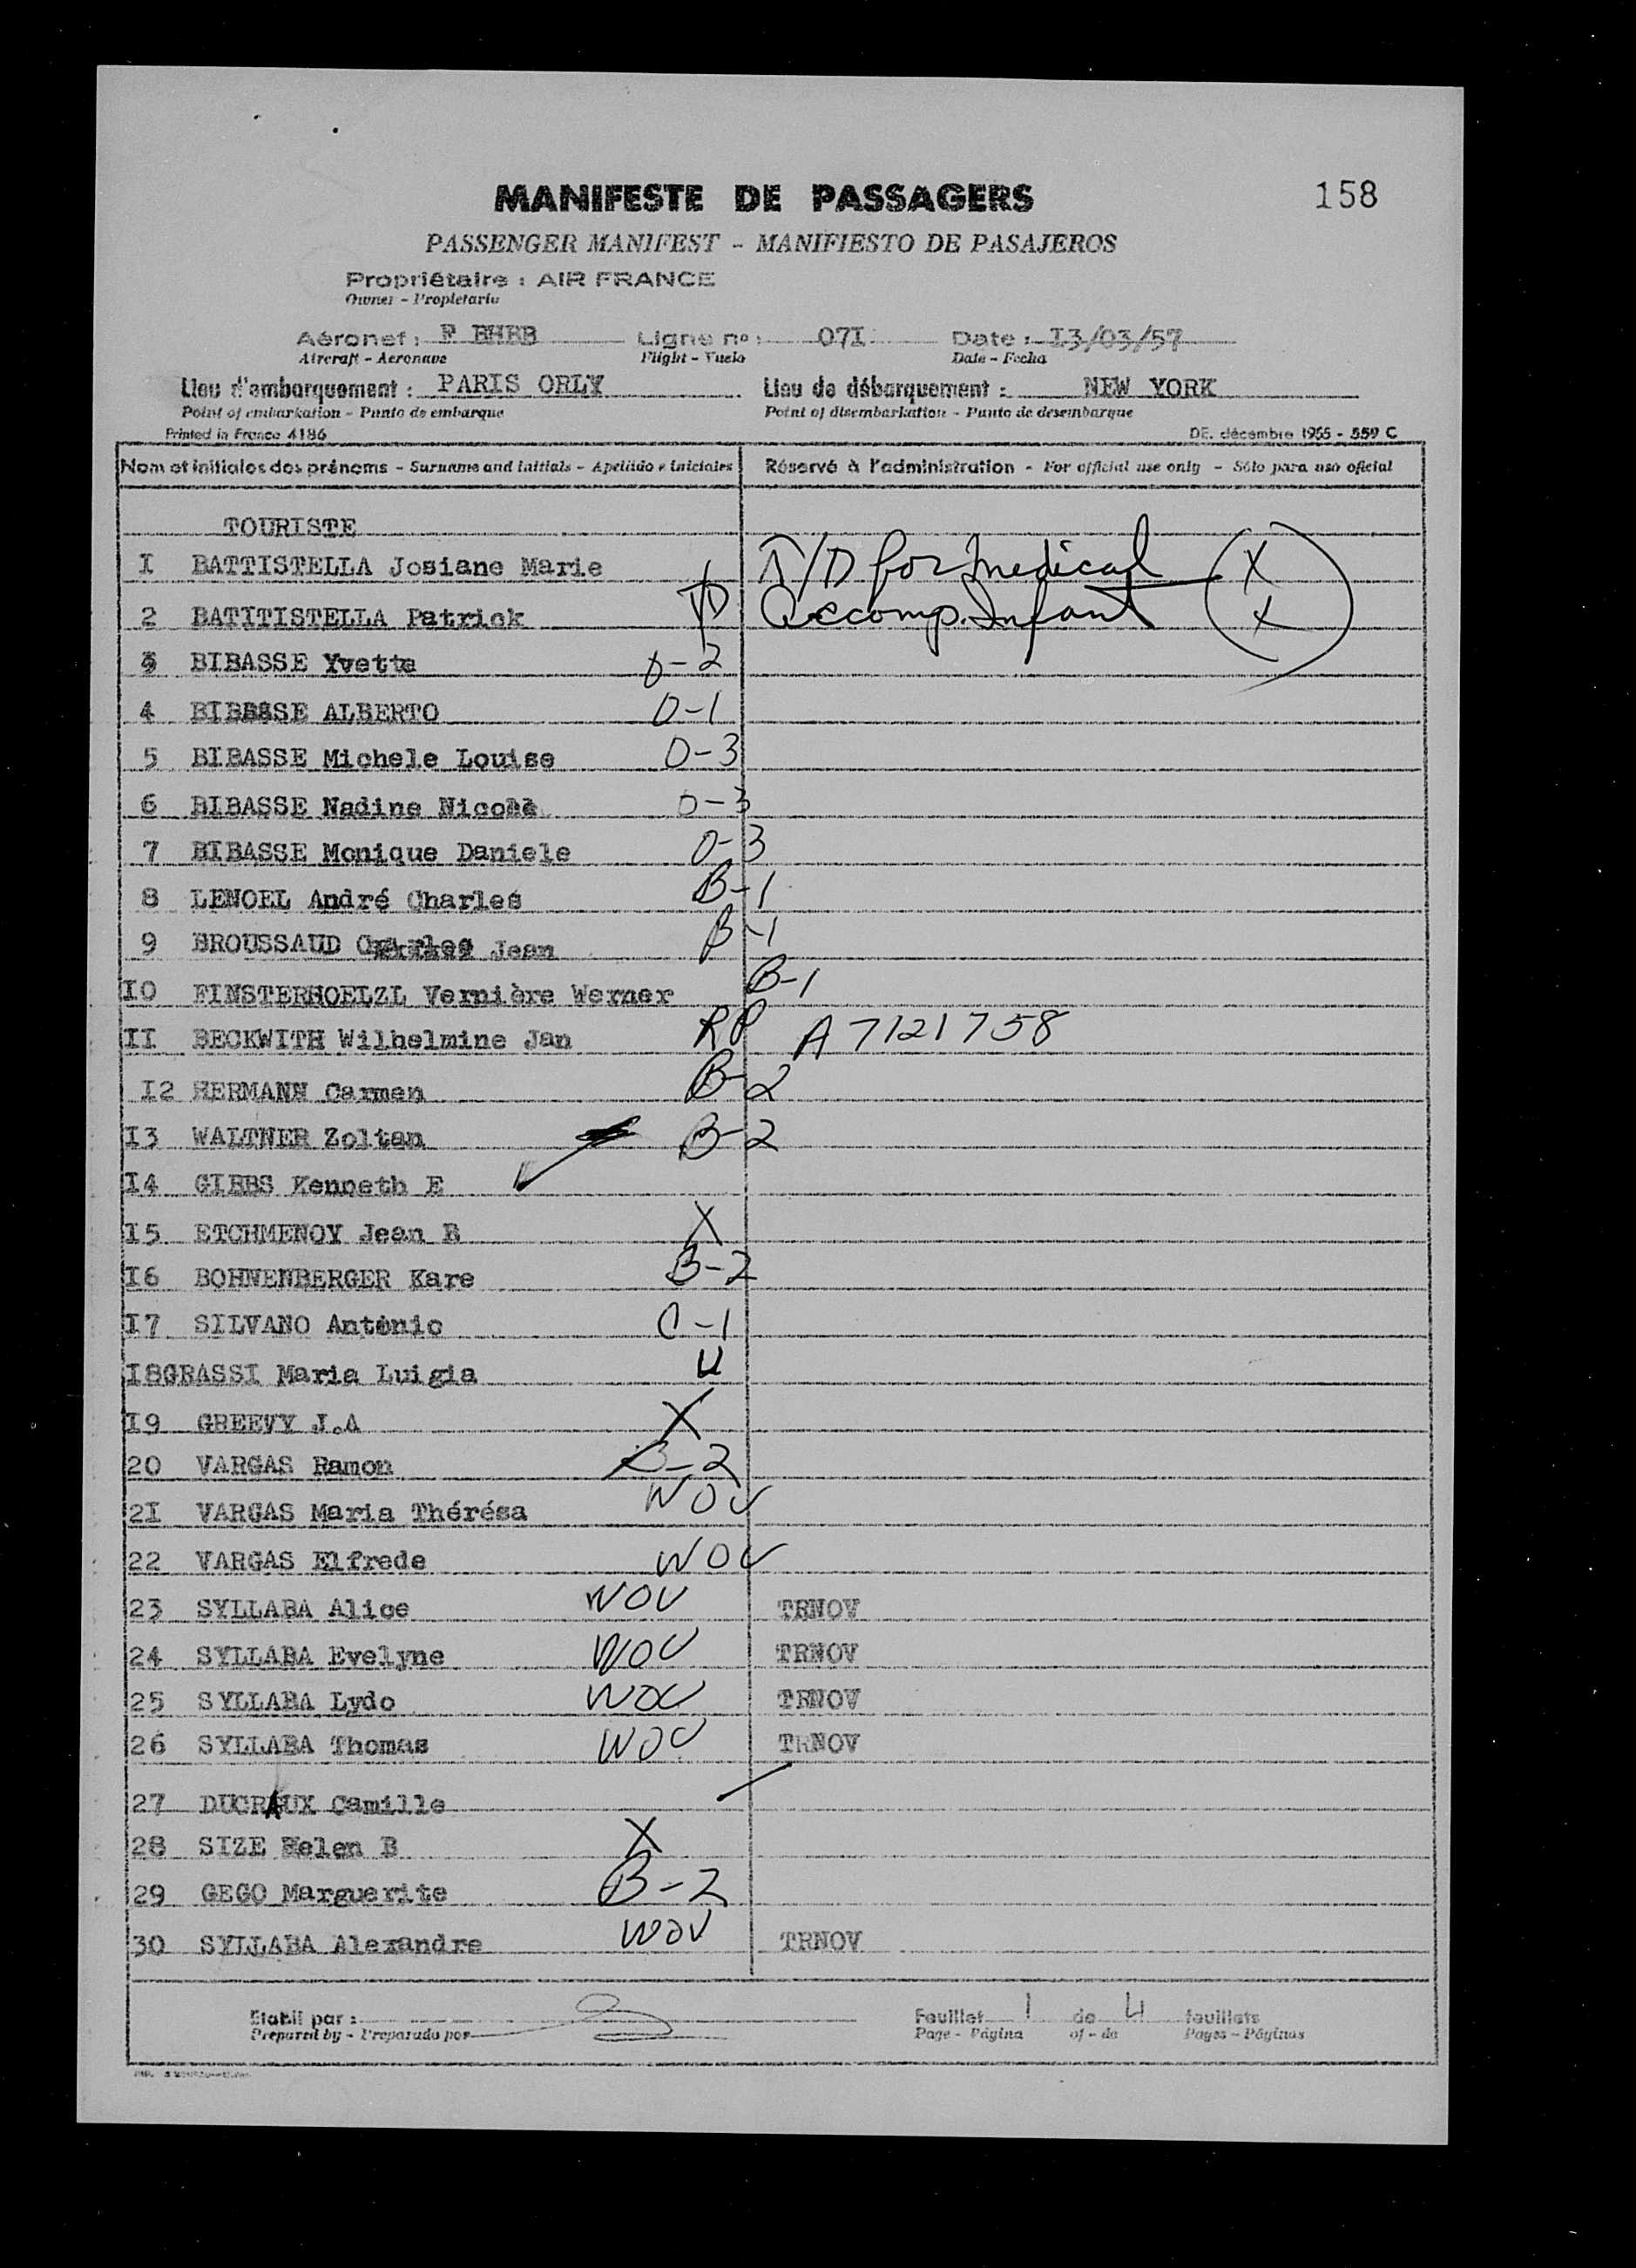 158
MANIFESTE DE PASSAGERS
PASSENGER MANIFEST - MANIFIESTO DE PASAJEROS
Propriétaire : AIR FRANCE
Owner - Propietario
Aéronef : F BHBB Ligne no : 07I Date : I3/03/57
Aircraft - Aeronave Flight - Vuelo Date - Fecha
Lieu d'embarquement : PARIS ORLY Lieu de débarquement : NEW YORK
Point of embarkation - Punto de embarque Point of disembarkation - Punto de desembarque
Printed in France 4186 DE. décembre 1955 - 559 C
Nom et initiales des prénoms - Surname and initials - Apellido e iniciales Réservé à l'administration - For official use only - Sólo para uso oficial
TOURISTE
I BATTISTELLA Josiane Marie T/D for medical X
2 BATITISTELLA Patrick TD accomp. Infant X
3 BIBASSE Yvette O-2
4 BIBBSSE ALBERTO O-1
5 BIBASSE Michele Louise O-3
6 BIBASSE Nadine Nicole O-3
7 BIBASSE Monique Daniele O-3
8 LENOEL André Charles B-1
9 BROUSSAUD Charles Jean B-1
IO FINSTERHOELZL Vernière Werner B-1
II BECKWITH Wilhelmine Jan RP A 7121758
I2 HERMANN Carmen B-2
I3 WALTNER Zoltan B-2
I4 GIBBS Kenneth E ✓
I5 ETCHMENOY Jean B X
I6 BOHNENBERGER Kare B-2
I7 SILVANO Antonio C-1
I8GRASSI Maria Luigia U
I9 GREEVY J.A X
20 VARGAS Ramon B-2
2I VARGAS Maria Thérésa WOV
22 VARGAS Elfrede WOV
23 SYLLABA Alice WOV TRNOV
24 SYLLABA Evelyne WOV TRNOV
25 SYLLABA Lydo WOV TRNOV
26 SYLLABA Thomas WOV TRNOV
27 DUCRAUX Camille
28 SIZE Helen B X
29 GEGO Marguerite B-2
30 SYLLABA Alexandre WOV TRNOV
Etabli par : Feuillet 1 de 4 feuillets
Prepared by - Preparado por Page - Página of - de Pages - Páginas